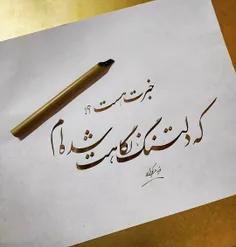 خبرت هست ؟!
که دلتنگ نگاهت شده‌ام